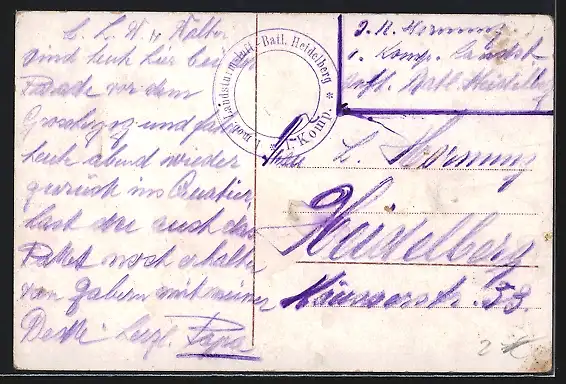 L. L. H. u Walter
sind heut hier bei der
Parade vor dem
Grosherzog und fahren
heute abend wieder
zurück ins Quatier,
hast Du auch das
Paket noch erhalten
von Zabern mit meiner
Decke Herzl. Papa
Landsturm Inftr.-Batl. Heidelberg
* 1. Komp. *
J. R. Hornung
1. Komp. Landst
Inft. Batl. Heidelberg
L. Hornung
Heidelberg
53.
2